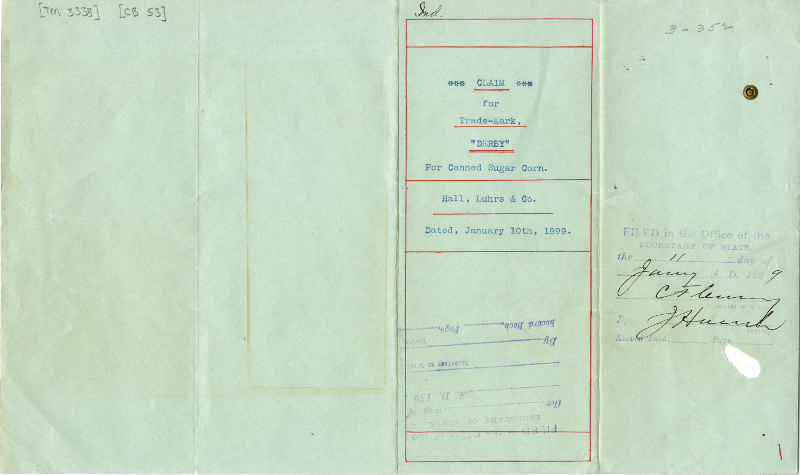 [TM 3338] [CB 53]
Ind.
*** CLAIM ***
for
Trade-Mark,
"DERBY"
For Canned Sugar Corn.
Hall, Luhrs & Co.
Dated, January 10th, 1899.
FILED in the Office of the
SECRETARY OF STATE
the
A. D. 189
SECRETARY OF STATE
By
Record Book, Page,
3-352
FILED in the Office of the
SECRETARY OF STATE
the 11 day of
Jany A. D. 1899
Record Book, Page,
1